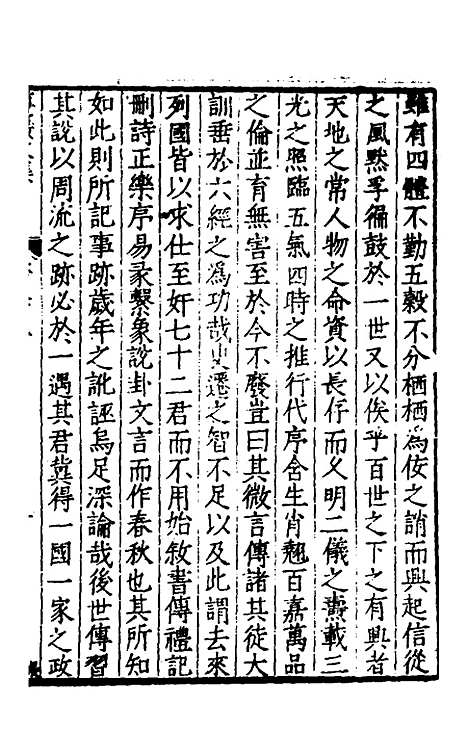 雖有四體不勤五穀不分栖栖為佞之誚而興起信從
之風黙孚徧鼓於一世又以俟乎百世之下之有興者
天地之常人物之命資以長存而乂明二儀之燾載三
光之照臨五氣四時之推行代序含生肖翹百嘉萬品
之倫並育無害至於今不廢豈曰其微言傳諸其徒大
訓垂於六經之為功哉史遷之智不足以及此謂去來
列國皆以求仕至奸七十二君而不用始敘書傳禮記
刪詩正樂序易彖繫象說卦文言而作春秋也其所知
如此則所記事跡歲年之訛誣烏足深論哉後世傳習
其說以周流之跡必於一遇其君冀得一國一家之政